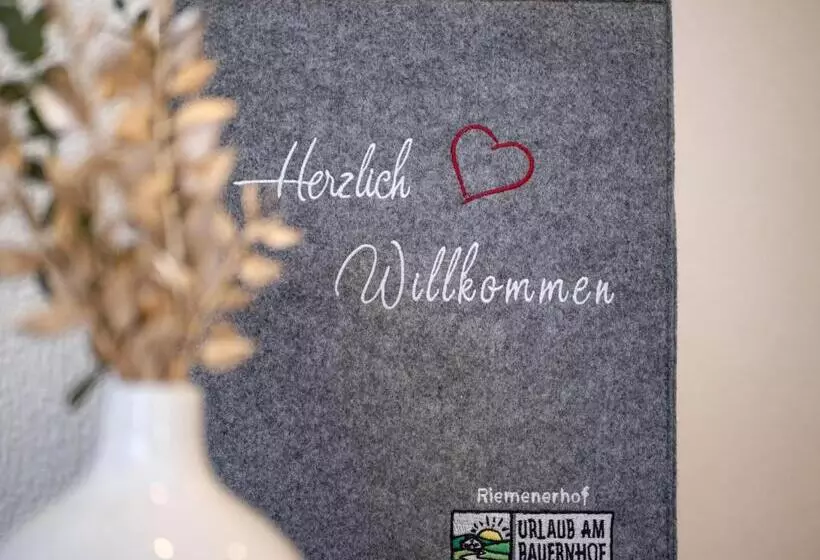 Herzlich
Willkommen
Riemenerhof
URLAUB AM
BAUERNHOF